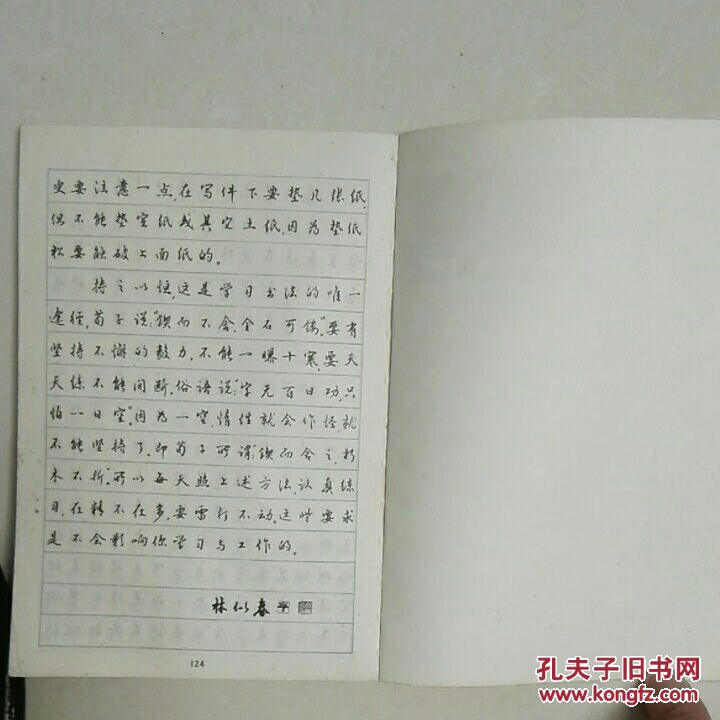 更要注意一点,在写件下要垫几张纸,
但不能垫宣纸或其它土纸,因为垫纸
松要触破上面纸的。
持之以恒,这是学习书法的唯一
途径,荀子说:“锲而不舍,金石可镂”。要有
坚持不懈的毅力,不能一曝十寒,要天
天练不能间断,俗语说:“字无百日功,只
怕一日空”。因为一空,惰性就会作怪,就
不能坚持了,即荀子所谓:“锲而舍之,朽
木不折”。所以每天照上述方法,认真练
习,在精不在多,要雷打不动,这些要求
是不会影响你学习与工作的。
林似春
124
孔夫子旧书网
www.kongfz.com